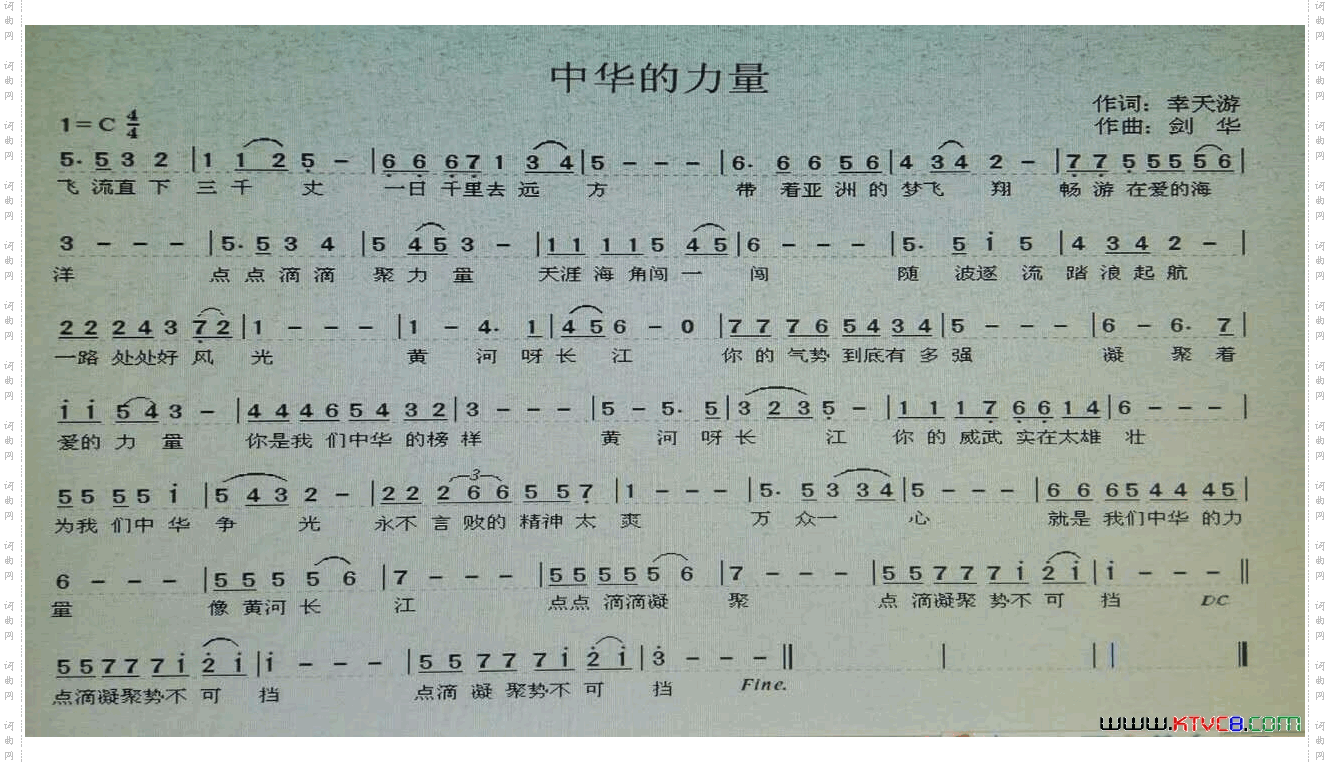 中华的力量
作词：幸天游
作曲：剑 华
1=C 4/4
5. 5 3 2 | 1 1 2 5 – | 6 6 6 7 1 3 4 | 5 – – – | 6. 6 6 5 6 | 4 3 4 2 – | 7 7 5 5 5 5 6 |
飞 流直 下 三 千 丈 一日 千里去 远 方 带 着亚 洲 的 梦飞 翔 畅 游 在爱的海
3 – – – | 5. 5 3 4 | 5 4 5 3 – | 1 1 1 1 5 4 5 | 6 – – – | 5. 5 i 5 | 4 3 4 2 – |
洋 点 点 滴 滴 聚 力 量 天涯 海 角闯 一 闯 随 波逐 流 踏 浪 起 航
2 2 2 4 3 7 2 | 1 – – – | 1 – 4. 1 | 4 5 6 – 0 | 7 7 7 6 5 4 3 4 | 5 – – – | 6 – 6. 7 |
一路 处处好 风 光 黄 河 呀 长 江 你 的 气势 到底有 多 强 凝 聚 着
i i 5 4 3 – | 4 4 4 6 5 4 3 2 | 3 – – – | 5 – 5. 5 | 3 2 3 5 – | 1 1 1 7 6 6 1 4 | 6 – – – |
爱的 力 量 你是我 们中华 的榜 样 黄 河 呀 长 江 你 的 威武 实在太雄 壮
5 5 5 5 i | 5 4 3 2 – | 2 2 2 6 6 5 5 7 | 1 – – – | 5. 5 3 3 4 | 5 – – – | 6 6 6 5 4 4 4 5 |
为我 们中 华 争 光 永不 言 败的 精神 太 爽 万 众一 心 就是 我们中华 的力
6 – – – | 5 5 5 5 6 | 7 – – – | 5 5 5 5 5 6 | 7 – – – | 5 5 7 7 7 i 2 i | i – – – ‖
量 像 黄河 长 江 点点 滴滴凝 聚 点 滴凝聚 势不 可 挡 DC
5 5 7 7 7 i 2 i | i – – – | 5 5 7 7 7 i 2 i | 3 – – – ‖
点滴凝聚势不 可 挡 点滴 凝 聚势不 可 挡 Fine.
www.KTVC8.com